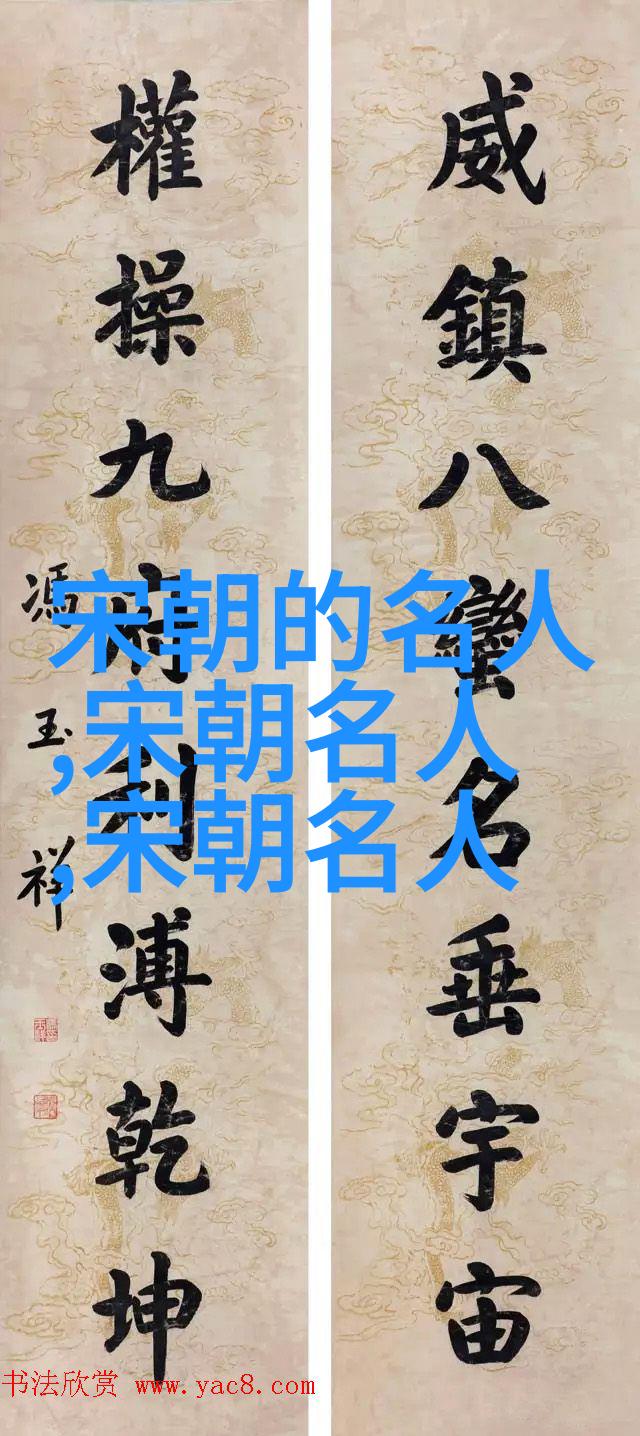 威鎮八蠻名垂宇宙
權操九府利溥乾坤
馮玉祥
宋朝的名人
,宋朝名人
,宋朝名人
书法欣赏 www.yac8.com